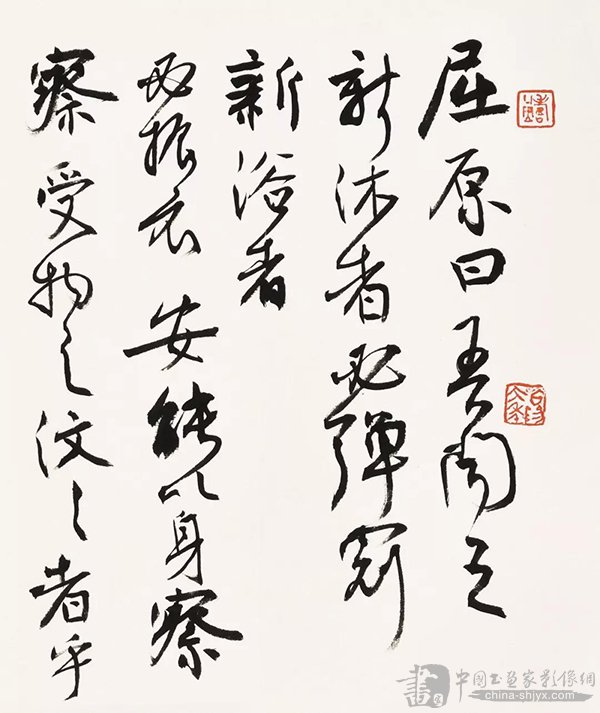 屈原曰吾闻之
新沐者必弹冠
新浴者
必振衣 安能以身察
察 受物之汶々者乎
中国书画家影像網
china-shjyx.com